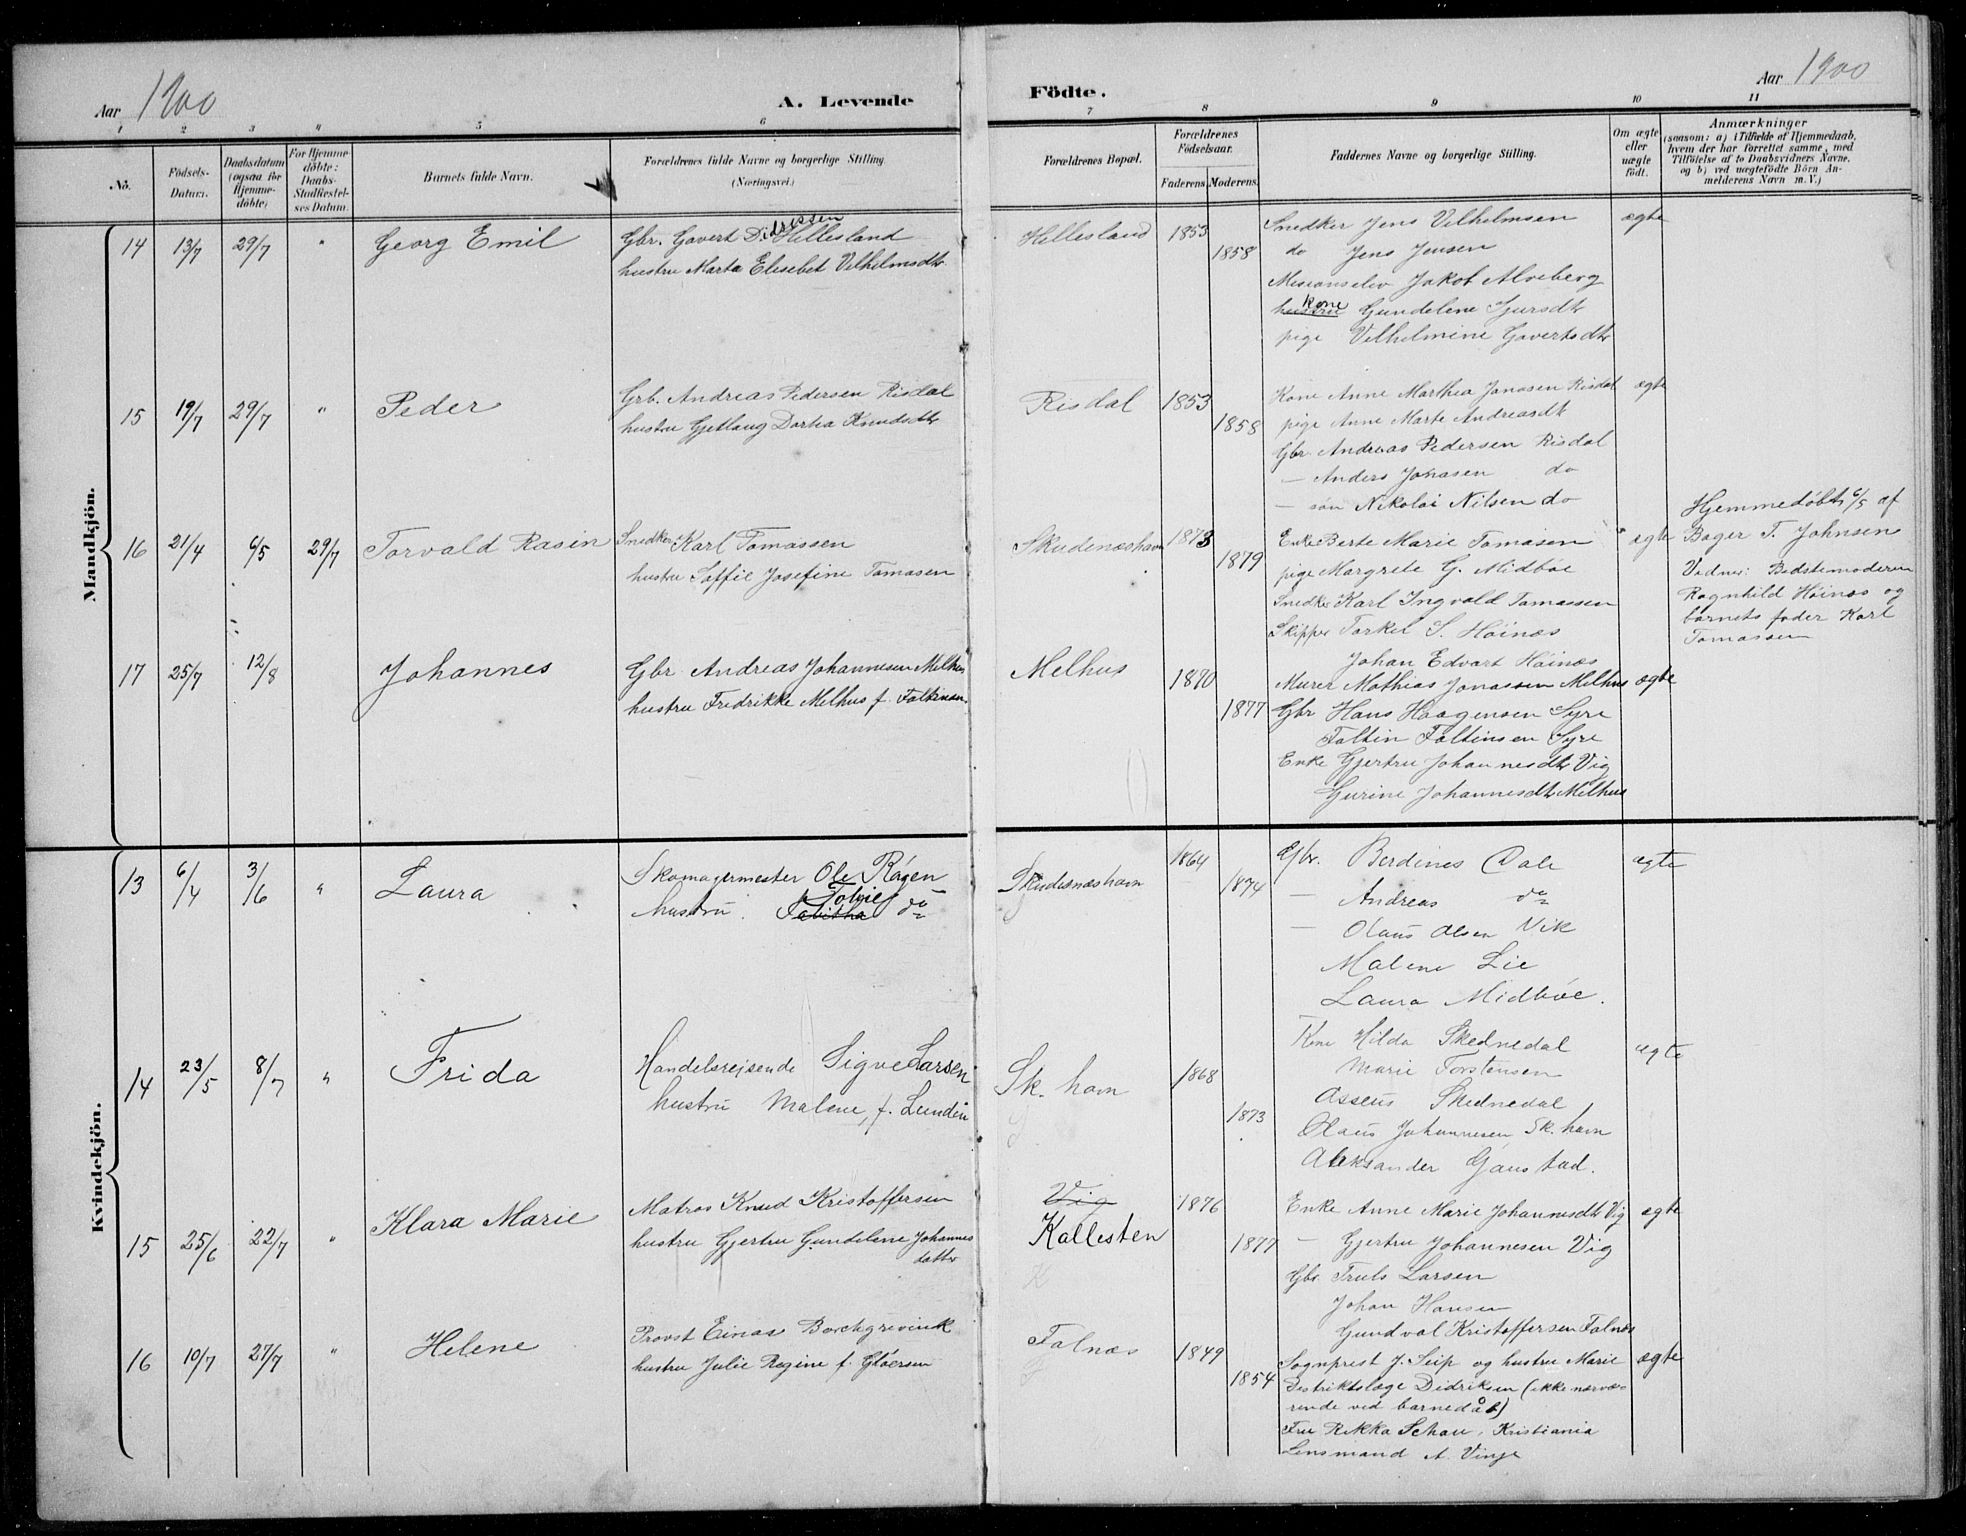 Aar 1900
A. Levende
Födte.
Aar 1900
1 2 3 4 5 6 7 8 9 10 11
No.
Födsels-
Datum.
Daabsdatum
(ogsaa för
Hjemme-
döbte)
For Hjemme
döbte:
Daabs-
Stadfæstel-
ses Datum.
Barnets fulde Navn.
Forældrenes fulde Navne og borgerlige Stilling.
(Næringsvei.)
Forældrenes Bopæl.
Forældrenes
Födselsaar.
Faderens. Moderens.
Faddernes Navne og borgerlige Stilling.
Om ægte
eller
uægte
födt.
Anmærkninger
(saasom: a) i Tilfælde af Hjemmedaab,
hvem der har forrettet samme, med
Tilföielse af to Daabsvidners Navne,
og b) ved uægtefödte Börn An-
melderens Navn m. V.)
Mandkjön.
14 13/7 29/7 " Georg Emil
Gbr. Govert Didrissen Hillesland
hustru Marta Elisebet Vilhelmsdtr.
Hillesland 1853 1858
Snedker Jens Vilhelmsen
do Jens Jensen
Missionselev Jakob Alveberg
hustru kone Gundelene Sjursdtr
pige Vilhelmine Govertsdtr
ægte
15 19/7 29/7 " Peder
Grb. Andreas Pedersen Risdal
hustru Gjetlaug Dortea Knudsdtr
Risdal 1853 1858
Kone Anne Marthea Jonasen Risdal
pige Anne Marte Andreasdt
Gbr. Andreas Pedersen Risdal
— Anders Jonasen do
— søn Nikolai Nilsen do
ægte
16 21/4 6/5 29/7 Torvald Rasin
Snedker Karl Tomassen
hustru Soffie Josefine Tomasen
Skudenæshavn 1873 1879
Enke Berte Marie Tomasen
pige Margrete G. Midbøe
Snedker Karl Ingvald Tomassen
Skipper Torkel S. Høinæs
Johan Edvart Høinæs
ægte
Hjemmedøbt 6/5 af
Bager T. Johnsen
Vidner: Bedstemoderen
Ragnhild Høinæs og
barnets fader Karl
Tomassen
17 25/7 12/8 Johannes
Gbr Andreas Johannesen Melhus
hustru Fredrikke Melhus f. Faltinsen.
Melhus 1870 1877
Murer Mathias Jonassen Melhus
Gbr Hans Haagensen Syre
Faltin Faltinsen Syre
Enke Gjertru Johannesdtr Vig
Gurine Johannesdtr Melhus
ægte
Kvindekjön.
13 6/4 3/6 " Laura
Skomagermester Ole Røgen
hustru. Tabitha Tolvie do
Skudesnæshavn 1864 1874
Gbr. Berdines Dale
— Andreas do
— Olaus Olsen Vik
Malene Lie
Laura Midbøe.
ægte
14 23/5 8/7 " Frida
Handelsreisende Sigve Larsen
hustru Malene, f. Lundin
Sk. havn 1868 1873
Kone Hilda Skednedal
Marie Torstensen
Asseus Skednedal
Olaus Johannesen Sk. havn
Aleksander Gaustad.
ægte
15 25/6 22/7 " Klara Marie
Matros Knud Kristoffersen
hustru Gjertru Gundelene Johannes
datter
Vig
Kallesten
1876 1877
Enke Anne Marie Johannesdtr Vig
— Gjertru Johannesen Vig
Gbr Truls Larsen
Johan Hansen
Gundval Kristoffersen Falnæs
ægte
16 10/7 27/7 " Helene
Provst Einar Borchgrevink
hustru Julie Regine f. Gløersen
Falnæs 1849 1854
Sognprest J. Seip og hustru Marie
Distriktslæge Didriksen (ikke nærvæ-
rende ved barnedåb)
Fru Rikka Schau, Kristiania
Lensmand A. Vinje
ægte